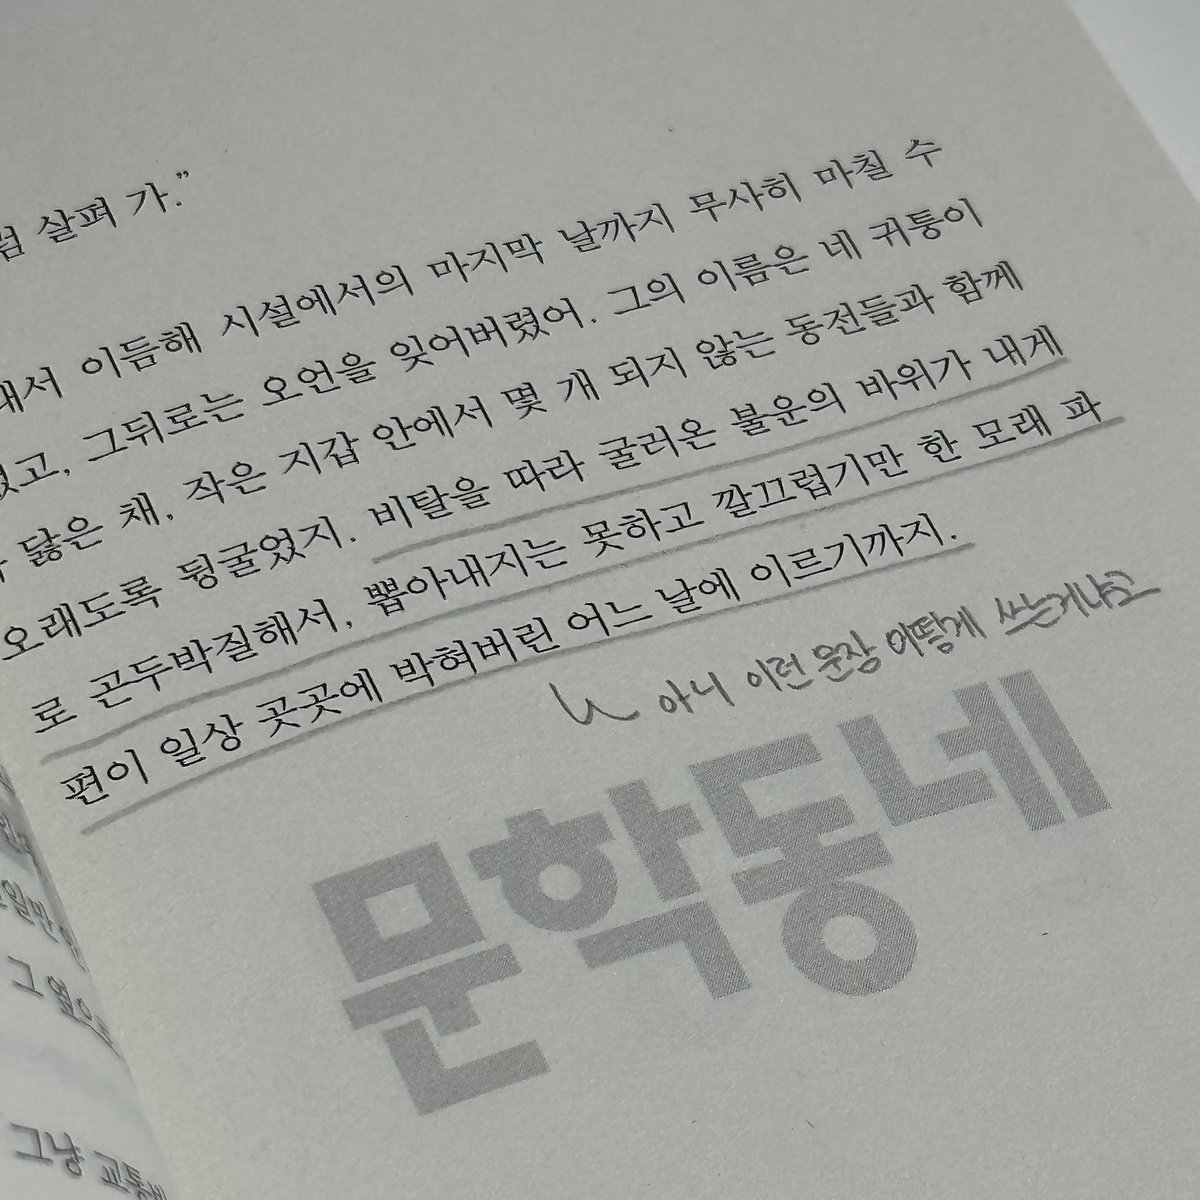 살펴 가."
이듬해 시설에서의 마지막 날까지 무사히 마칠 수
그뒤로는 오언을 잊어버렸어. 그의 이름은 네 귀퉁이
닳은 채, 작은 지갑 안에서 몇 개 되지 않는 동전들과 함께
오래도록 뒹굴었지. 비탈을 따라 굴러온 불운의 바위가 내게
로 곤두박질해서, 뽑아내지는 못하고 깔끄럽기만 한 모래 파
편이 일상 곳곳에 박혀버린 어느 날에 이르기까지.
아니 이런 문장 어떻게 쓰는게냐고
문학동네
그 옆으로
그냥